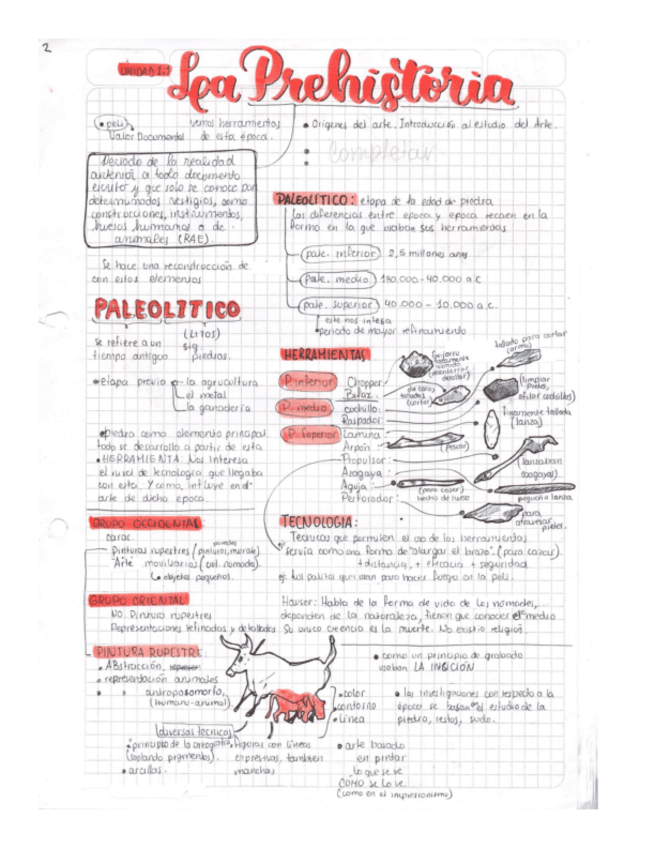 2
UNIDAD 1.1
La Prehistoria
• peli vemos herramientas
Valor Documental de esta época.
• Orígenes del arte. Introducción al estudio del Arte.
Completar
Periodo de la realidad
anterior a todo documento
escrito y que solo se conoce por
determinados vestigios, como
construcciones, instrumentos,
huesos humanos o de
animales (RAE).
Se hace una reconstrucción de
con estos elementos
PALEOLÍTICO: etapa de la edad de piedra
Las diferencias entre epoca y epoca recaen en la
forma en la que usaban sus herramientas
pale. inferior 2,5 millones anys
Pale. medio 180.000-40.000 a.c
pale. superior 40.000 - 10.000 a.c.
este nos interesa
•periodo de mayor refinamiento
PALEOLITICO
se refiere a un
tiempo antiguo
(LITOS)
sig
piedras.
•etapa previo a la agricultura
el metal
la ganaderia
•piedra como elemento principal
todo se desarrollo a partir de esta
•HERRAMIENTA Nos interesa
el nivel de tecnologia que llegaba
con esta. Y como influye en el
arte de dicha epoca.
HERRAMIENTAS
P. inferior
P. medio
P. Superior
Chopper:
Bifaz:
cuchillo:
Raspador
Lamina
Arpón:
Propulsor:
Azagaya:
Aguja:
Perforador:
de caras
talladas
(cortar)
tallado para cortar
(arma)
(limpiar
pieles,
afilar cuchillos)
finamente tallada
(lanza)
(pescar)
(lanzaban
azagayas)
(para coser)
hecho de hueso
pequeña lanza
para
pieles.
GRUPO OCCIDENTAL
carac.
Pinturas rupestres (pinturas, murales)
paredes
"Arte moviliarias (col. nomada).
objetos pequeños.
GRUPO ORIENTAL
NO. Pintura rupestres
Representaciones refinadas y detalladas
TECNOLOGIA:
Tecnicas que permiten el uso de las herramientas
Servia como una forma de "alargar el brazo". (para cazar)
+ distancia, + eficacia + seguridad
ej. Los palitos que usan para hacer fuego en la peli.
Hauser: Habla de la forma de vida de los nomades,
dependen de la naturaleza, tienen que conocer el medio
Su unica creencia es la muerte. No existio religion.
PINTURA RUPESTRE:
• ABstracción,
• representación animales
• " antroposomorfo,
(humano-animal).
diversas tecnicas
•principio de la
(soplando pigmentos).
• arcillas.
figuras con líneas
expresivas, tambien
manchas
•color
contorno
•linea
• arte basado
en pintar
lo que se ve
CÓMO se lo ve.
(como en el impresionismo)
• como un principio de grabado
usaban LA INCICIÓN
• las investigaciones con respecto a la
época se basan en el estudio de la
piedra, restos, suelo.